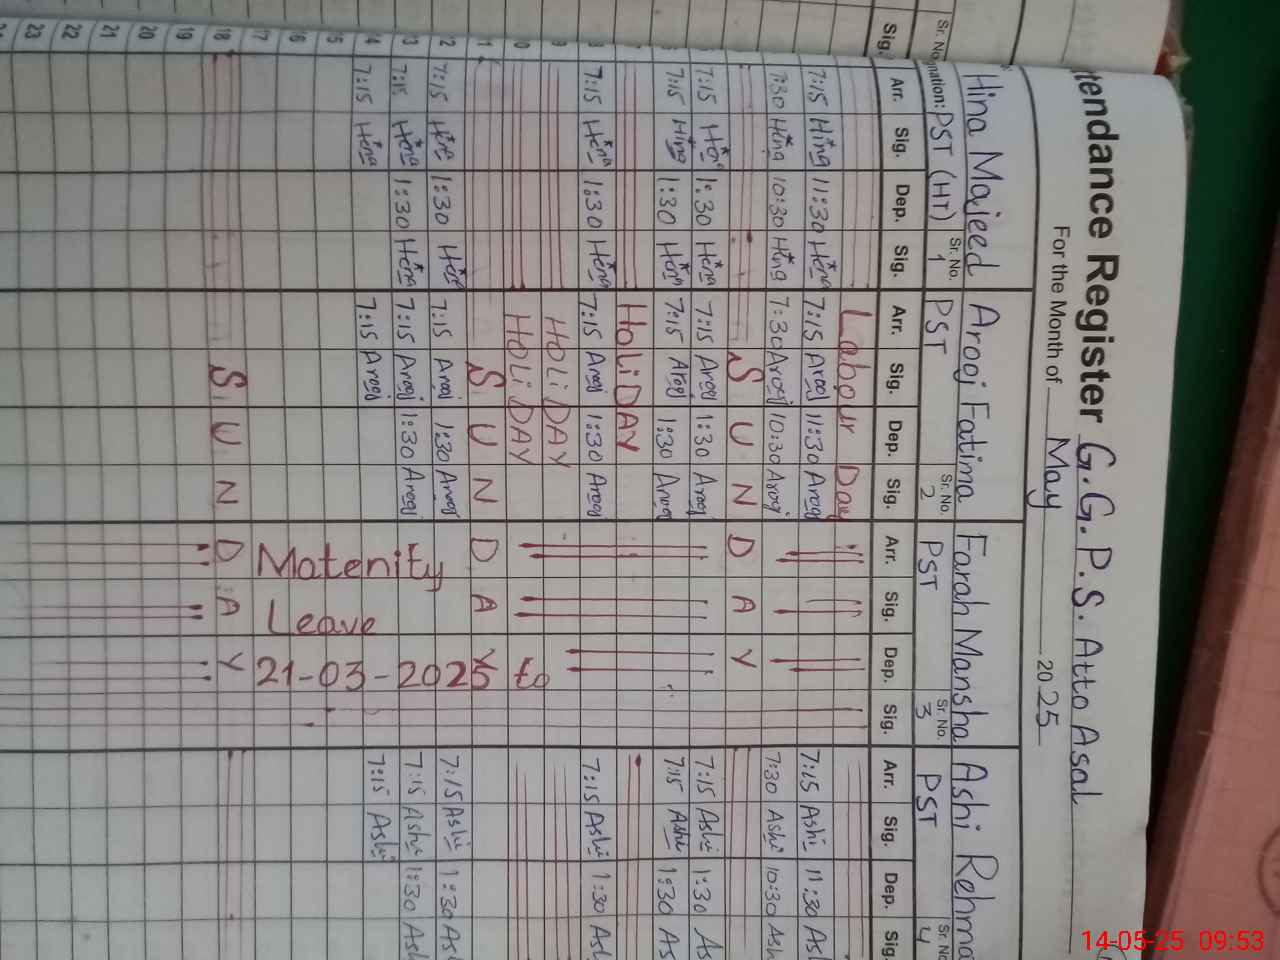 Attendance Register G.G.P.S. Atto Asal
For the Month of May 2025
Hina Majeed Arooj Fatima Farah Mansha Ashi Rehma
nation: PST (HT) Sr. No. 1 PST Sr. No. 2 PST Sr. No. 3 PST Sr. No. 4
Arr. Sig. Dep. Sig. Arr. Sig. Dep. Sig. Arr. Sig. Dep. Sig. Arr. Sig. Dep. Sig.
Labour Day
7:15 Hina 11:30 Hina 7:15 Arooj 11:30 Arooj 7:15 Ashi 11:30 As
7:30 Hina 10:30 Hina 7:30 Arooj 10:30 Arooj 7:30 Ashi 10:30 Ash
S U N D A Y
7:15 Hina 1:30 Hina 7:15 Arooj 1:30 Arooj 7:15 Ashi 1:30 As
7:15 Hina 1:30 Hina 7:15 Arooj 1:30 Arooj 7:15 Ashi 1:30 As
HoLiDAY
8 7:15 Hina 1:30 Hina 7:15 Arooj 1:30 Arooj 7:15 Ashi 1:30 As
9 HOLiDAY
0 HOLiDAY to
1 S U N D A Y
12 7:15 Hina 1:30 Hina 7:15 Arooj 1:30 Arooj 7:15 Ashi 1:30 As
13 7:15 Hina 1:30 Hina 7:15 Arooj 1:30 Arooj 7:15 Ashi 1:30 Ash
14 7:15 Hina 7:15 Arooj 7:15 Ashi
Matenity
Leave
21-03-2025
15
16
17
18 S U N D A Y
19
20
21
22
23
Sr. No.
Sig.
14-05-25 09:53